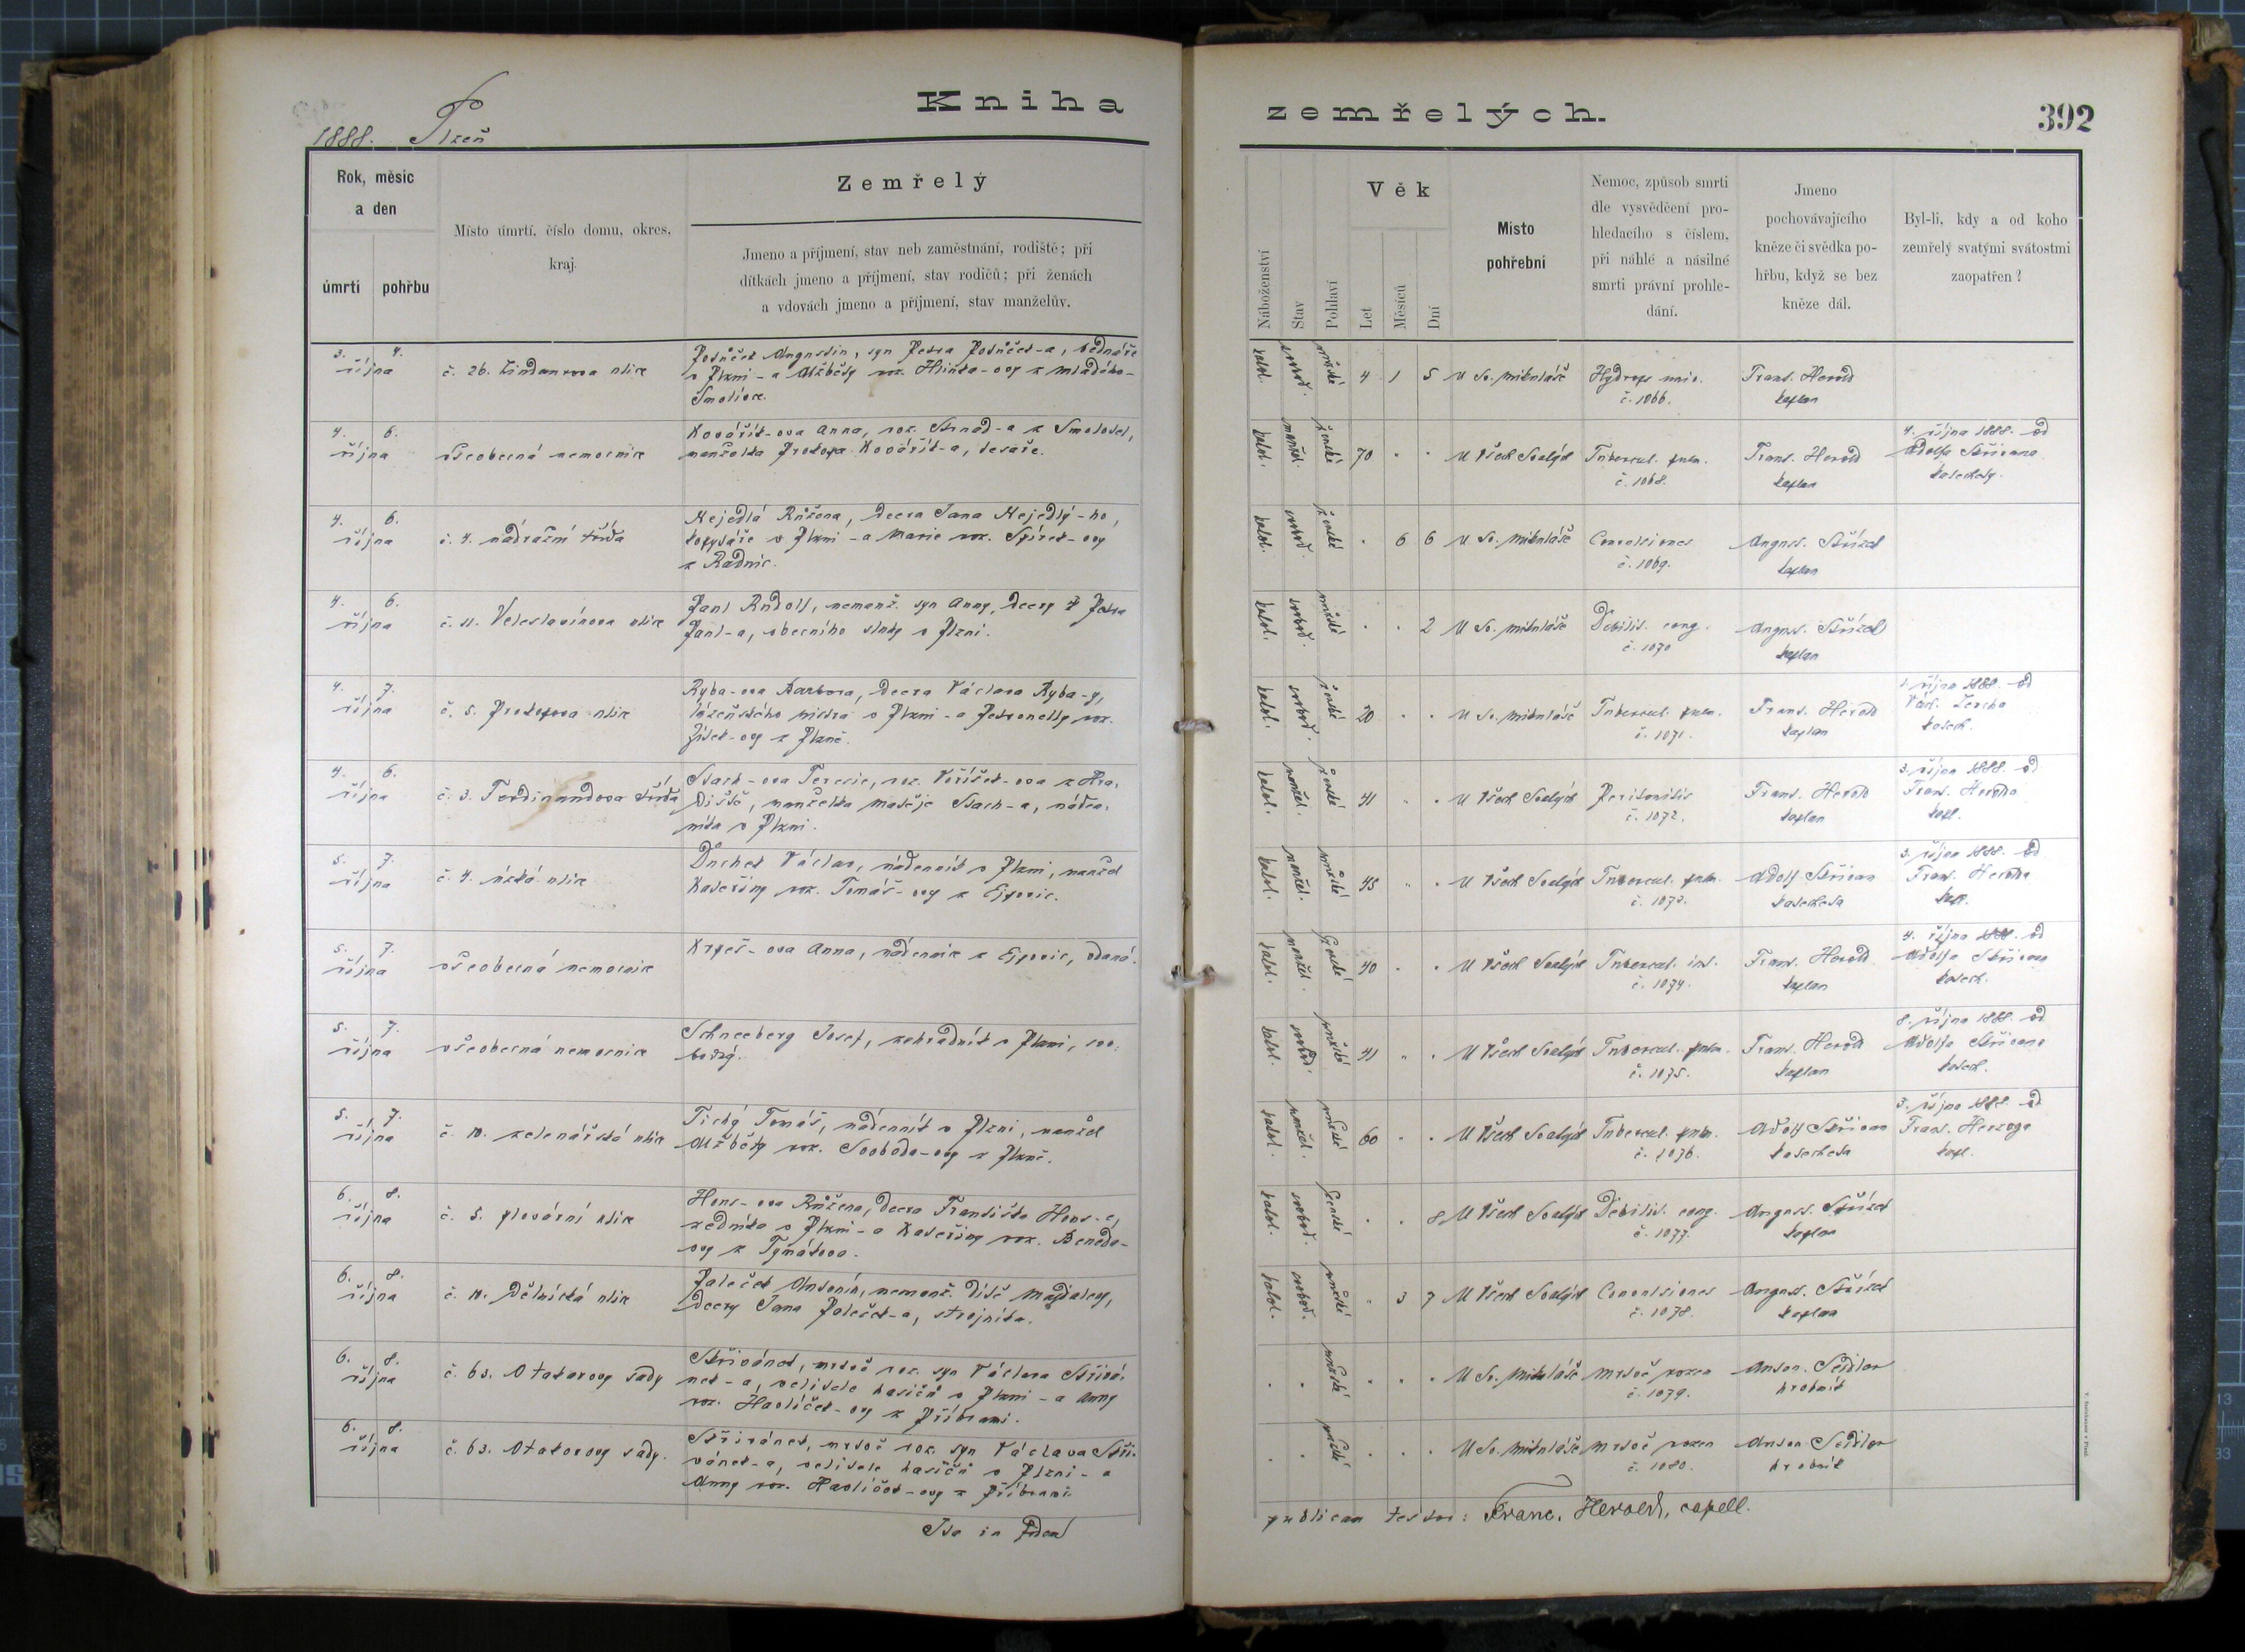 Kniha
zemřelých.
392
1888. Plzeň
Rok, měsíc
a den
úmrtí
pohřbu
Místo úmrtí, číslo domu, okres,
kraj.
Zemřelý
Jmeno a příjmení, stav neb zaměstnání, rodiště; při
dítkách jmeno a příjmení, stav rodičů; při ženách
a vdovách jmeno a příjmení, stav manželův.
Náboženství
Stav
Pohlaví
Věk
Let
Měsíců
Dní
Místo
pohřební
Nemoc, způsob smrti
dle vysvědčení pro-
hledacího s číslem,
při náhlé a násilné
smrti právní prohle-
dání.
Jmeno
pochovávajícího
kněze či svědka po-
hřbu, když se bez
kněze dál.
Byl-li, kdy a od koho
zemřelý svatými svátostmi
zaopatřen?
3. 4.
října
č. 26. ulice
Augustin, syn Petra bednáře
v Plzni - a Alžběty roz.
katol. svobod. mužské 4 1 5 U Sv. Mikuláše
č. 1066.
Frant. Herold
kaplan
4. 6.
října
všeobecná nemocnice
Kovářík-ova Anna, roz. Strnad-a z
manželka Prokopa Kovářík-a, tesaře.
katol. manžel. ženské 70 U Všech Svatých
Tubercul. pulm.
č. 1068.
Frant. Herold
kaplan
4. října 1888. od
Adolfa Skřivana
katechety.
4. 6.
října
č. 4. nádražní třída
Nejedlá Růžena, dcera Jana Nejedlý-ho,
v Plzni - a Marie roz.
z Radnic.
katol. svobod. ženské 6 6 U Sv. Mikuláše
Convulsiones
č. 1069.
August. Střízek
kaplan
4. 6.
října
č. 11. Veleslavínova ulice
Rudolf, nemanž. syn Anny, dcery Petra
obecního sluhy v Plzni.
katol. svobod. mužské 2 U Sv. Mikuláše
Debilit. cong.
č. 1070
August. Střízek
kaplan
4. 7.
října
č. 5. Prokopova ulice
Ryba-ova Barbora, dcera Václava Ryba-y,
v Plzni - a Petronelly roz.
katol. svobod. ženské 20 U Sv. Mikuláše
Tubercul. pulm.
č. 1071.
Frant. Herold
kaplan
října 1888. od
4. 6.
října
č. 3. Ferdinandova třída
Stach-ova Terezie, roz. Voříšek-ova z Hra-
diště, manželka Matěje Stach-a,
v Plzni.
katol. manžel. ženské 41 U Všech Svatých
Peritonitis
č. 1072.
Frant. Herold
kaplan
3. října 1888. od
Frant. Herolda
kapl.
5. 7.
října
č. 4. úzká ulice
Důchek Václav, nádenník v Plzni, manžel
Kateřiny roz. Tomáš-ovy z Ejpovic.
katol. manžel. mužské 45 U Všech Svatých
Tubercul. pulm.
č. 1073.
Adolf Skřivan
katecheta
3. října 1888. od
Frant.
kapl.
5. 7.
října
všeobecná nemocnice
Anna, nádennice z Ejpovic, vdaná.
katol. manžel. ženské 40 U Všech Svatých
Tubercul. int.
č. 1074.
Frant. Herold
kaplan
4. října 1888. od
Adolfa Skřivana
katech.
5. 7.
října
všeobecná nemocnice
Schneeberg Josef, zahradník v Plzni, svo-
bodný.
katol. svobod. mužské 41 U Všech Svatých
Tubercul. pulm.
č. 1075.
Frant. Herold
kaplan
října 1888. od
Adolfa Skřivana
katech.
5. 7.
října
č. 10. zelenářská ulice
Tichý Tomáš, nádenník v Plzni, manžel
Alžběty roz. Svoboda-ovy z Plzně.
katol. manžel. mužské 60 U Všech Svatých
Tubercul. pulm.
č. 1076.
Adolf Skřivan
katecheta
3. října 1888. od
Frant. Herzoga
kapl.
6. 8.
října
č. 5. plovární ulice
Hons-ova Růžena, dcera Františka Hons-a,
zedníka v Plzni - a Kateřiny roz. Beneda-
ovy z Tymákova.
katol. svobod. ženské 8 U Všech Svatých
Debilit. cong.
č. 1077.
August. Střízek
kaplan
6. 8.
října
č. 10. Dělnická ulice
Paleček Antonín, nemanž. dítě Magdaleny,
dcery Jana Paleček-a, strojníka.
katol. svobod. mužské 3 7 U Všech Svatých
Convulsiones
č. 1078.
August. Střízek
kaplan
6. 8.
října
č. 63. Otakarovy sady
Skřivánek, mrtvě roz. syn Václava Skřivá-
nek-a, velitele hasičů v Plzni - a Anny
roz. Havlíček-ovy z Příbrami.
mužské U Sv. Mikuláše
mrtvě rozen
č. 1079.
Anton. Seidler
hrobník
6. 8.
října
č. 63. Otakarovy sady.
Skřivánek, mrtvě roz. syn Václava Skři-
vánek-a, velitele hasičů v Plzni - a
Anny roz. Havlíček-ovy z Příbrami.
mužské U Sv. Mikuláše
mrtvě rozen
č. 1080.
Anton. Seidler
hrobník
Ita in fidem
publicam testor: Franc. Herold, capell.